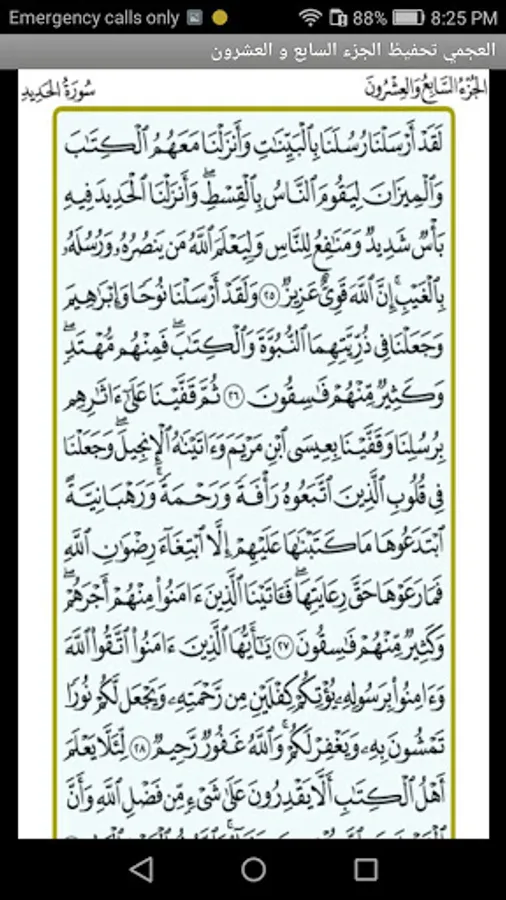 Emergency calls only 88% 8:25 PM
العجمي تحفيظ الجزء السابع و العشرون
الجُزْءُ السَّابِعُ وَالعِشْرُونَ سُورَةُ الحَدِيدِ
لَقَدْ أَرْسَلْنَا رُسُلَنَا بِالْبَيِّنَاتِ وَأَنزَلْنَا مَعَهُمُ الْكِتَابَ
وَالْمِيزَانَ لِيَقُومَ النَّاسُ بِالْقِسْطِ ۖ وَأَنزَلْنَا الْحَدِيدَ فِيهِ
بَأْسٌ شَدِيدٌ وَمَنَافِعُ لِلنَّاسِ وَلِيَعْلَمَ اللَّهُ مَن يَنصُرُهُ وَرُسُلَهُ
بِالْغَيْبِ ۚ إِنَّ اللَّهَ قَوِيٌّ عَزِيزٌ ٢٥ وَلَقَدْ أَرْسَلْنَا نُوحًا وَإِبْرَاهِيمَ
وَجَعَلْنَا فِي ذُرِّيَّتِهِمَا النُّبُوَّةَ وَالْكِتَابَ ۖ فَمِنْهُم مُّهْتَدٍ ۖ
وَكَثِيرٌ مِّنْهُمْ فَاسِقُونَ ٢٦ ثُمَّ قَفَّيْنَا عَلَىٰ ءَاثَارِهِم
بِرُسُلِنَا وَقَفَّيْنَا بِعِيسَى ابْنِ مَرْيَمَ وَءَاتَيْنَاهُ الْإِنجِيلَ ۖ وَجَعَلْنَا
فِي قُلُوبِ الَّذِينَ اتَّبَعُوهُ رَأْفَةً وَرَحْمَةً ۚ وَرَهْبَانِيَّةً
ابْتَدَعُوهَا مَا كَتَبْنَاهَا عَلَيْهِمْ إِلَّا ابْتِغَاءَ رِضْوَانِ اللَّهِ
فَمَا رَعَوْهَا حَقَّ رِعَايَتِهَا ۖ فَـَٔاتَيْنَا الَّذِينَ ءَامَنُوا مِنْهُمْ أَجْرَهُمْ ۖ
وَكَثِيرٌ مِّنْهُمْ فَاسِقُونَ ٢٧ يَا أَيُّهَا الَّذِينَ ءَامَنُوا اتَّقُوا اللَّهَ
وَءَامِنُوا بِرَسُولِهِ يُؤْتِكُمْ كِفْلَيْنِ مِن رَّحْمَتِهِ وَيَجْعَل لَّكُمْ نُورًا
تَمْشُونَ بِهِ وَيَغْفِرْ لَكُمْ ۚ وَاللَّهُ غَفُورٌ رَّحِيمٌ ٢٨ لِّئَلَّا يَعْلَمَ
أَهْلُ الْكِتَابِ أَلَّا يَقْدِرُونَ عَلَىٰ شَيْءٍ مِّن فَضْلِ اللَّهِ وَأَنَّ